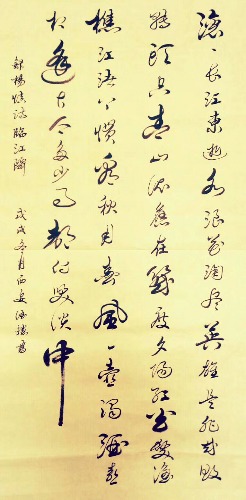 滚滚长江东逝水浪花淘尽英雄是非成败
转头空青山依旧在几度夕阳红白发渔
樵江渚上惯看秋月春风一壶浊酒喜
相逢古今多少事都付笑谈中
录杨慎词临江仙
戊戌冬月西安